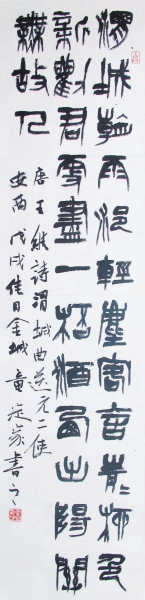 渭城朝雨浥輕塵客舍青〻柳色
新勸君更盡一桮酒西出陽關
無故人
唐王維詩渭城曲送元二使
安西戊戌佳日金城童定家書之